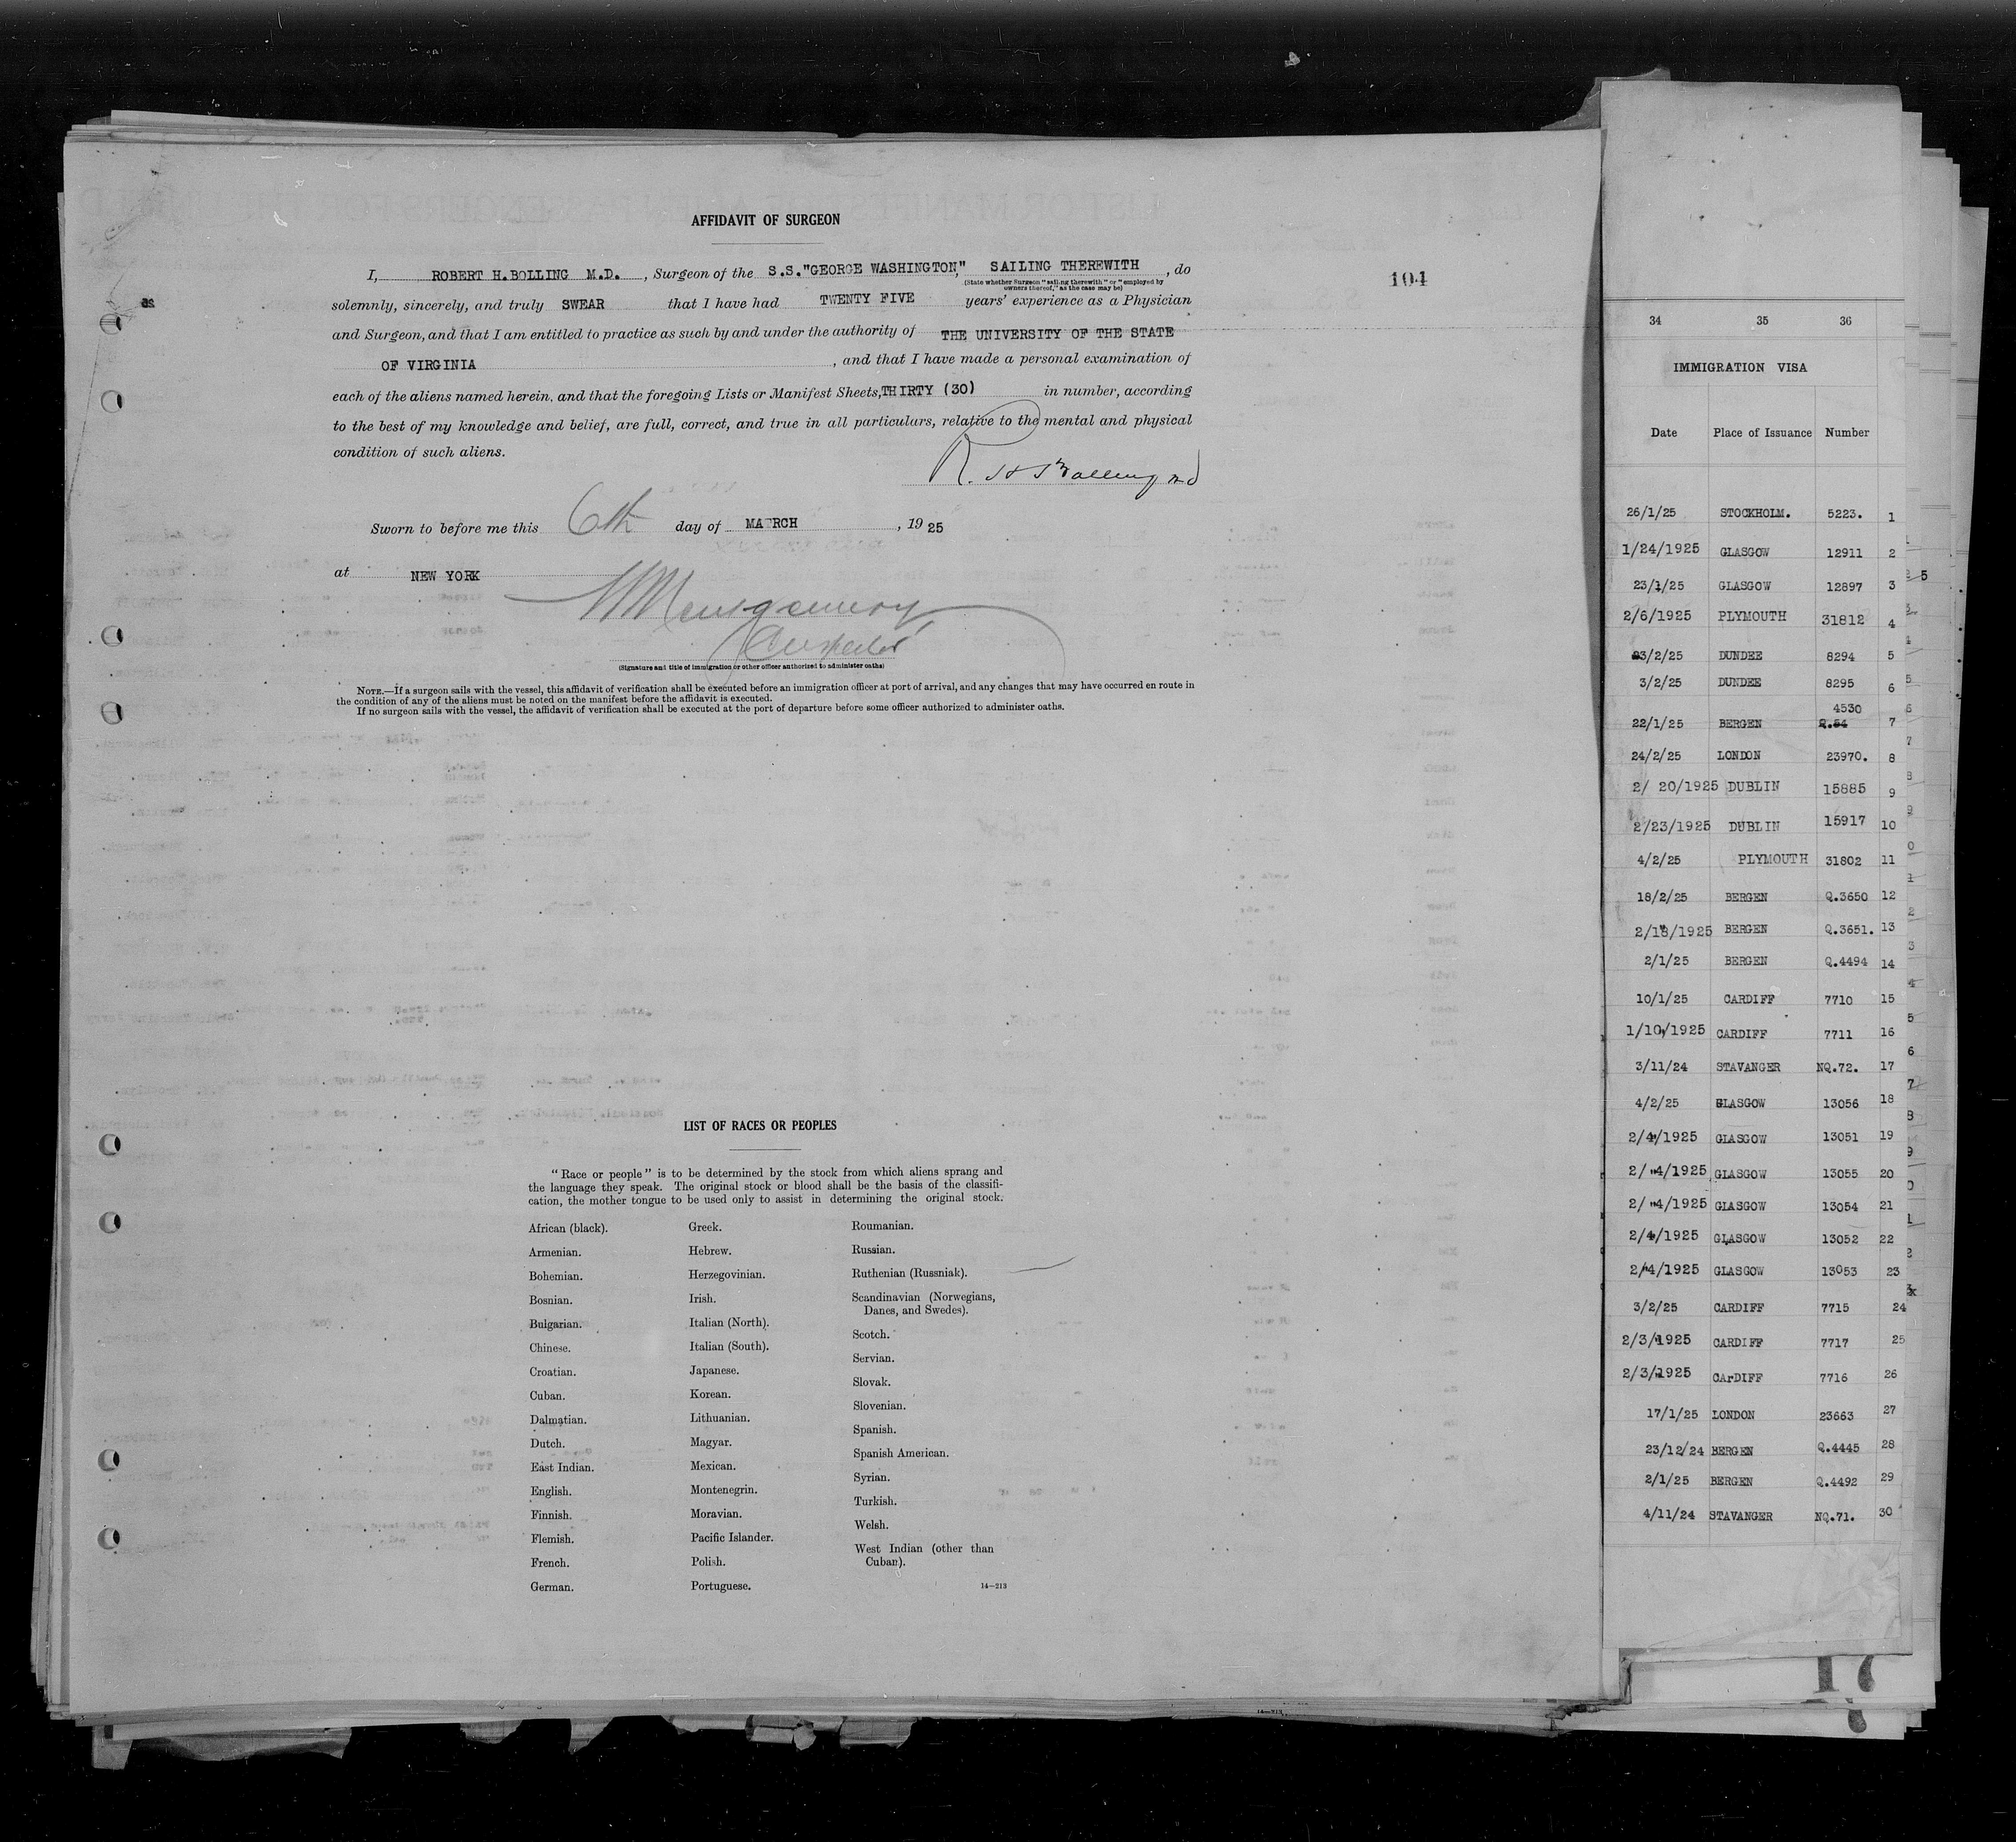 AFFIDAVIT OF SURGEON
I, ROBERT H.BOLLING M.D. , Surgeon of the S.S."GEORGE WASHINGTON," SAILING THEREWITH , do
(State whether Surgeon "sailing therewith" or "employed by
owners thereof," as the case may be)
104
as
solemnly, sincerely, and truly SWEAR that I have had TWENTY FIVE years' experience as a Physician
and Surgeon, and that I am entitled to practice as such by and under the authority of THE UNIVERSITY OF THE STATE
OF VIRGINIA , and that I have made a personal examination of
each of the aliens named herein, and that the foregoing Lists or Manifest Sheets, THIRTY (30) in number, according
to the best of my knowledge and belief, are full, correct, and true in all particulars, relative to the mental and physical
condition of such aliens.
R. H Bolling md
Sworn to before me this 6th day of MARCH , 1925
at NEW YORK
Montgomery
Inspector
(Signature and title of immigration or other officer authorized to administer oaths)
NOTE.—If a surgeon sails with the vessel, this affidavit of verification shall be executed before an immigration officer at port of arrival, and any changes that may have occurred en route in
the condition of any of the aliens must be noted on the manifest before the affidavit is executed.
If no surgeon sails with the vessel, the affidavit of verification shall be executed at the port of departure before some officer authorized to administer oaths.
LIST OF RACES OR PEOPLES
"Race or people" is to be determined by the stock from which aliens sprang and
the language they speak. The original stock or blood shall be the basis of the classifi-
cation, the mother tongue to be used only to assist in determining the original stock.
African (black).
Armenian.
Bohemian.
Bosnian.
Bulgarian.
Chinese.
Croatian.
Cuban.
Dalmatian.
Dutch.
East Indian.
English.
Finnish.
Flemish.
French.
German.
Greek.
Hebrew.
Herzegovinian.
Irish.
Italian (North).
Italian (South).
Japanese.
Korean.
Lithuanian.
Magyar.
Mexican.
Montenegrin.
Moravian.
Pacific Islander.
Polish.
Portuguese.
Roumanian.
Russian.
Ruthenian (Russniak).
Scandinavian (Norwegians,
Danes, and Swedes).
Scotch.
Servian.
Slovak.
Slovenian.
Spanish.
Spanish American.
Syrian.
Turkish.
Welsh.
West Indian (other than
Cuban).
14—213
34 35 36
IMMIGRATION VISA
Date Place of Issuance Number
26/1/25 STOCKHOLM. 5223. 1
1/24/1925 GLASGOW 12911 2
23/1/25 GLASGOW 12897 3
2/6/1925 PLYMOUTH 31812 4
3/2/25 DUNDEE 8294 5
3/2/25 DUNDEE 8295 6
4530
22/1/25 BERGEN 7
24/2/25 LONDON 23970. 8
2/ 20/1925 DUBLIN 15885 9
2/23/1925 DUBLIN 15917 10
4/2/25 PLYMOUTH 31802 11
18/2/25 BERGEN Q.3650 12
2/18/1925 BERGEN Q.3651. 13
2/1/25 BERGEN Q.4494 14
10/1/25 CARDIFF 7710 15
1/10/1925 CARDIFF 7711 16
3/11/24 STAVANGER NQ.72. 17
4/2/25 GLASGOW 13056 18
2/4/1925 GLASGOW 13051 19
2/ 4/1925 GLASGOW 13055 20
2/ 4/1925 GLASGOW 13054 21
2/4/1925 GLASGOW 13052 22
2/4/1925 GLASGOW 13053 23
3/2/25 CARDIFF 7715 24
2/3/1925 CARDIFF 7717 25
2/3/1925 CArDIFF 7716 26
17/1/25 LONDON 23663 27
23/12/24 BERGEN Q.4445 28
2/1/25 BERGEN Q.4492 29
4/11/24 STAVANGER NQ.71. 30
17
14—213